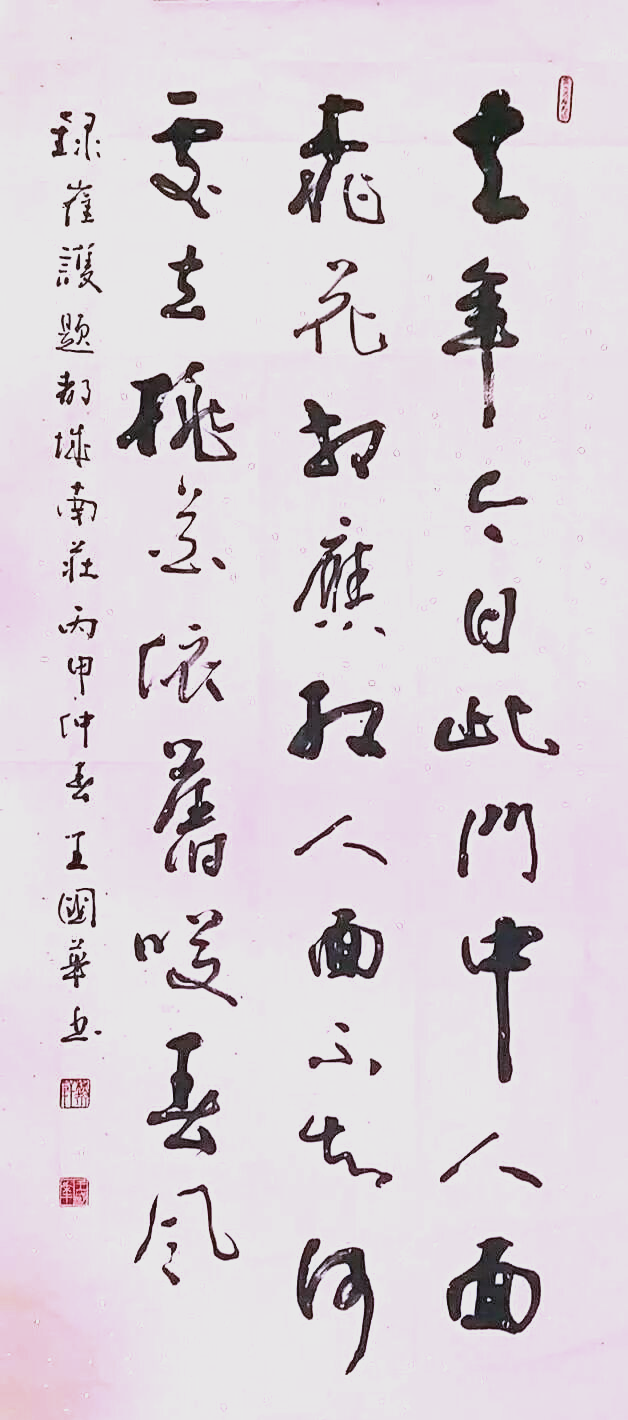 去年今日此門中人面
桃花相應紅人面不知何
處去桃花依舊笑春風
錄崔護題都城南莊丙申仲春王國華書